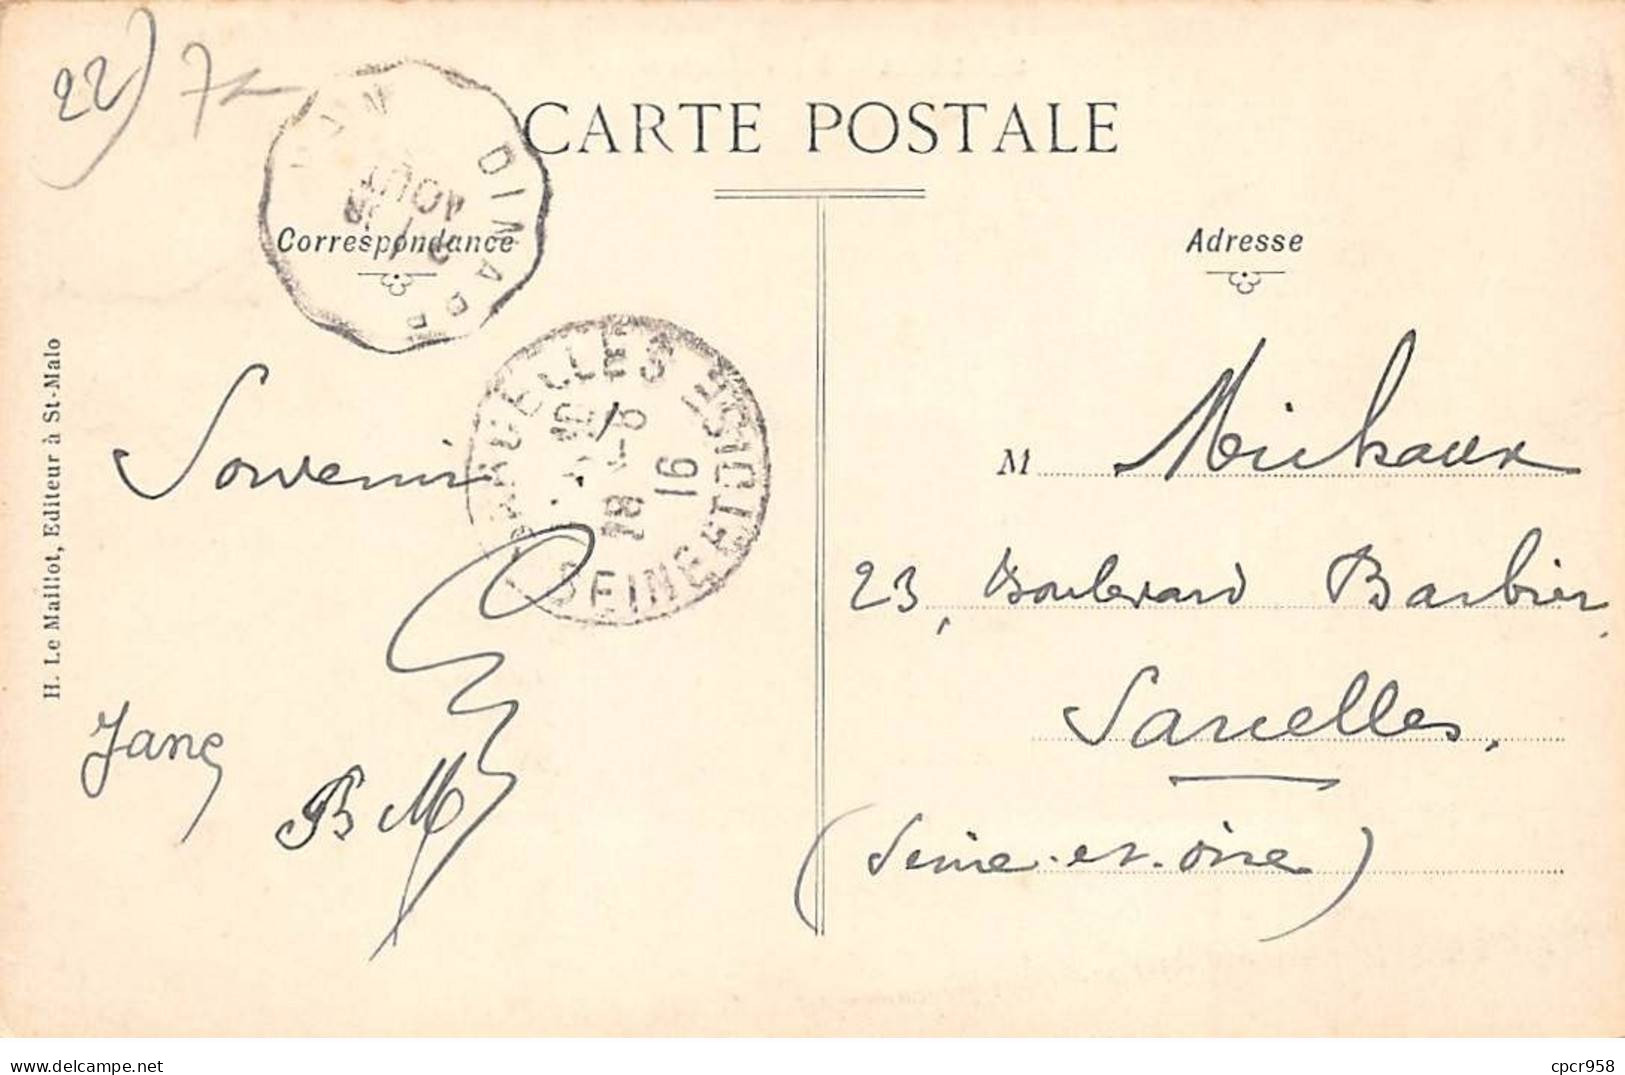 22) 7
CARTE POSTALE
Correspondance
Adresse
DINARD
AOUT
SARCELLES
18-8
16
SEINE ET OISE
H. Le Maillot, Editeur à St-Malo
Souvenir
Jane
BM
M Michaux
23, Boulevard Barbier,
Sarcelles.
(Seine-et-Oise)
delcampe.net
cpcr958